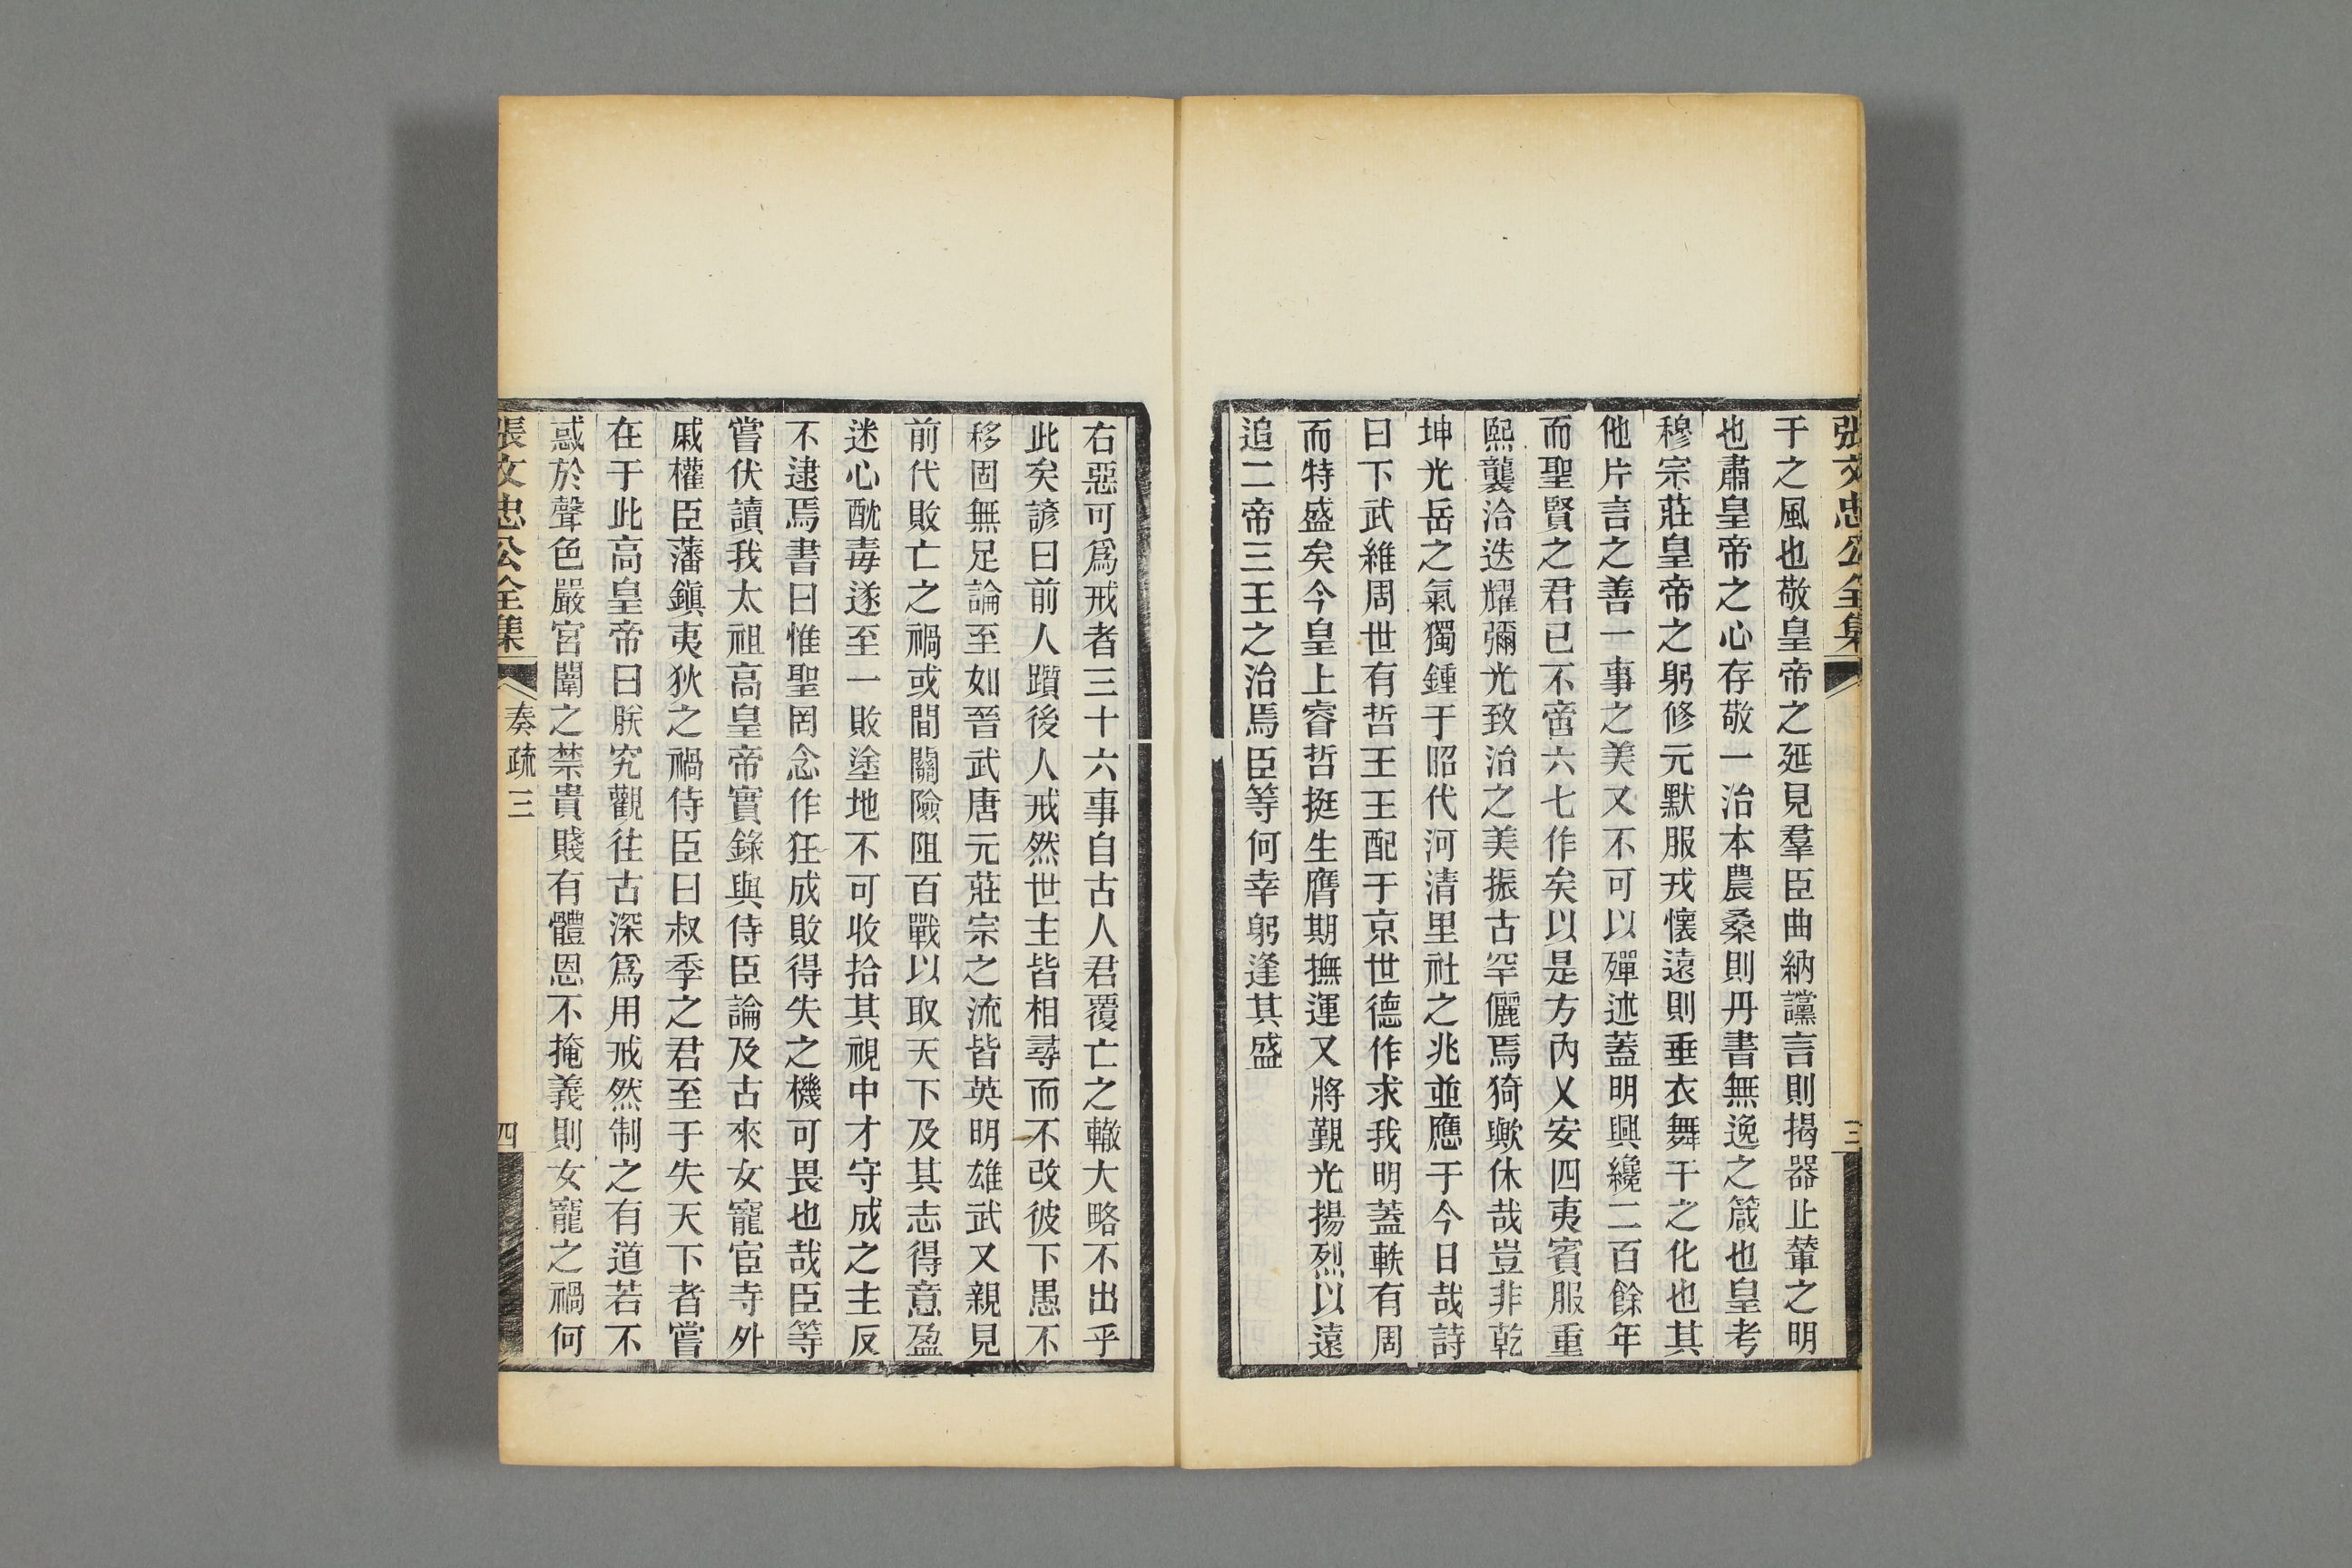 張文忠公全集
三
于之風也敬皇帝之延見羣臣曲納讜言則揭器止輦之明
也肅皇帝之心存敬一治本農桑則丹書無逸之箴也皇考
穆宗莊皇帝之躬修元默服戎懷遠則垂衣舞干之化也其
他片言之善一事之美又不可以殫述蓋明興纔二百餘年
而聖賢之君已不啻六七作矣以是方內乂安四夷賓服重
熙襲洽迭耀彌光致治之美振古罕儷焉猗歟休哉豈非乾
坤光岳之氣獨鍾于昭代河清里社之兆並應于今日哉詩
曰下武維周世有哲王王配于京世德作求我明蓋軼有周
而特盛矣今皇上睿哲挺生膺期撫運又將覲光揚烈以遠
追二帝三王之治焉臣等何幸躬逢其盛
右惡可爲戒者三十六事自古人君覆亡之轍大略不出乎
此矣諺曰前人躓後人戒然世主皆相尋而不改彼下愚不
移固無足論至如晉武唐元莊宗之流皆英明雄武又親見
前代敗亡之禍或間關險阻百戰以取天下及其志得意盈
迷心酖毒遂至一敗塗地不可收拾其視中才守成之主反
不逮焉書曰惟聖罔念作狂成敗得失之機可畏也哉臣等
嘗伏讀我太祖高皇帝實錄與侍臣論及古來女寵宦寺外
戚權臣藩鎭夷狄之禍侍臣曰叔季之君至于失天下者嘗
在于此高皇帝曰朕究觀往古深爲用戒然制之有道若不
惑於聲色嚴宮闈之禁貴賤有體恩不掩義則女寵之禍何
張文忠公全集
奏疏三
四